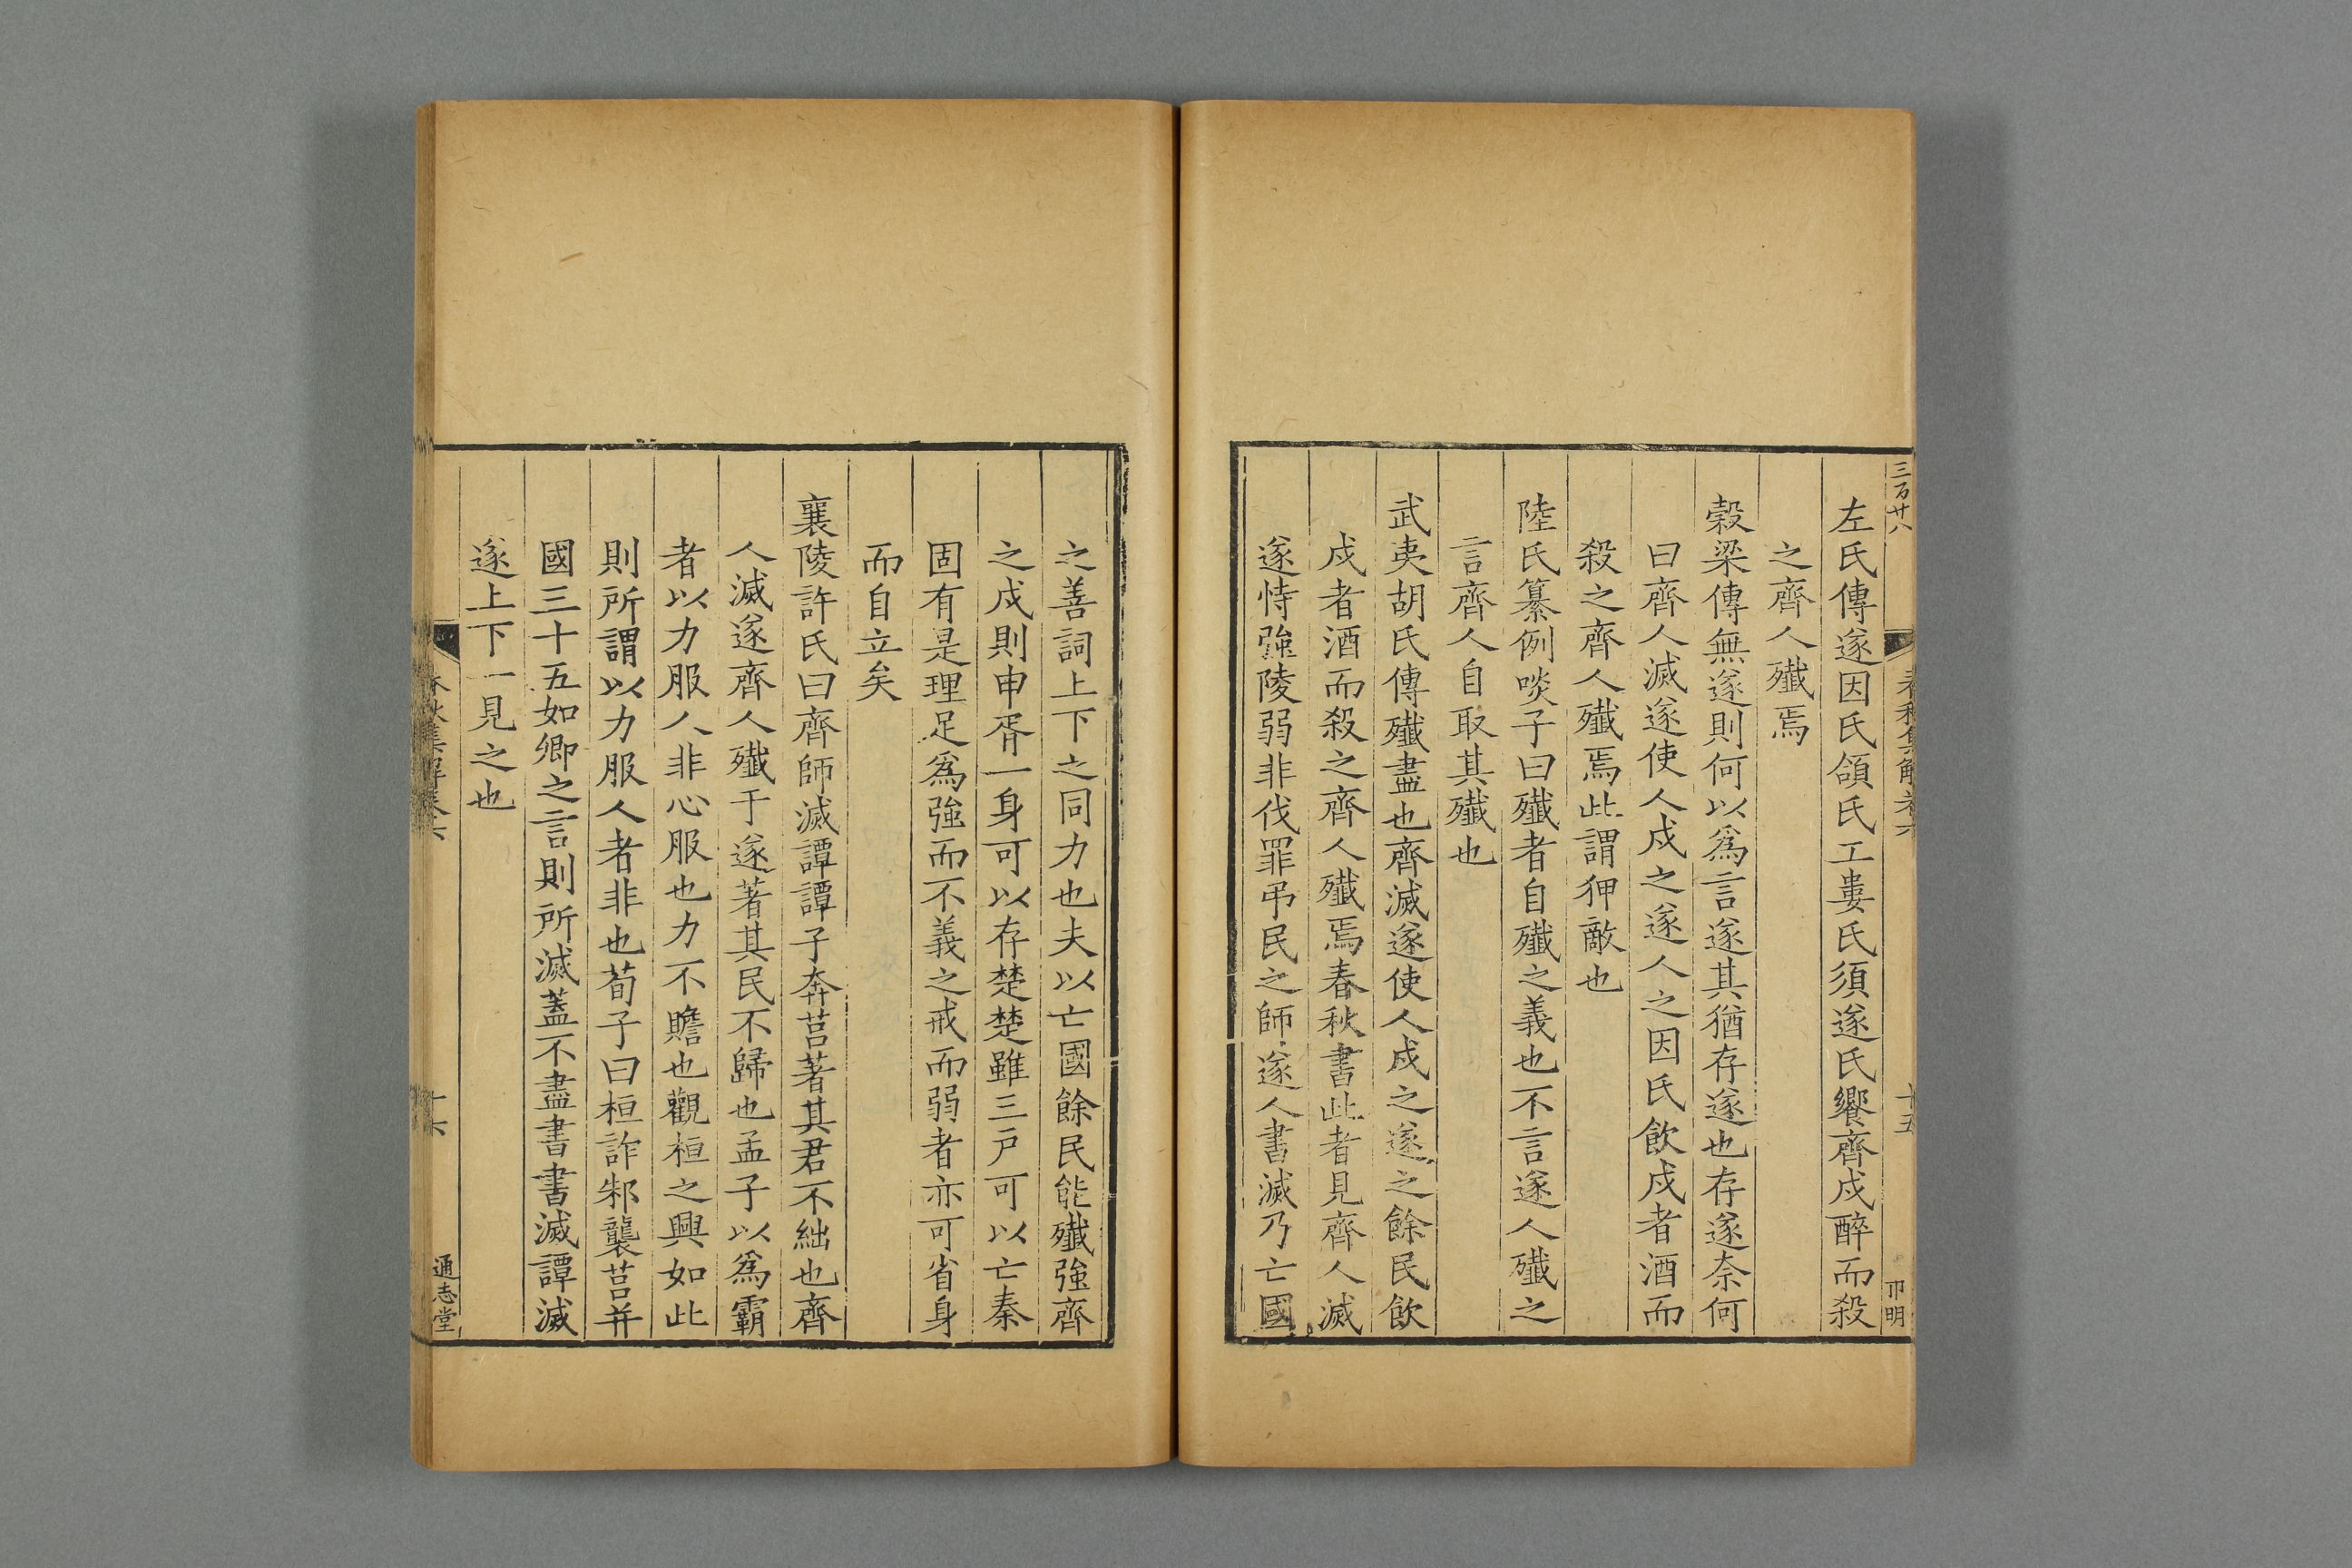 三百廿八
春秋集解卷六
十五
卭明
左氏傳遂因氏頜氏工婁氏須遂氏饗齊戍醉而殺
之齊人殲焉
穀梁傳無遂則何以爲言遂其猶存遂也存遂奈何
曰齊人滅遂使人戍之遂人之因氏飲戍者酒而
殺之齊人殲焉此謂狎敵也
陸氏纂例啖子曰殲者自殲之義也不言遂人殲之
言齊人自取其殲也
武夷胡氏傳殲盡也齊滅遂使人戍之遂之餘民飲
戍者酒而殺之齊人殲焉春秋書此者見齊人滅
遂恃強陵弱非伐罪弔民之師遂人書滅乃亡國
之善詞上下之同力也夫以亡國餘民能殲強齊
之戍則申胥一身可以存楚楚雖三戸可以亡秦
固有是理足爲強而不義之戒而弱者亦可省身
而自立矣
襄陵許氏曰齊師滅譚譚子奔莒著其君不絀也齊
人滅遂齊人殲于遂著其民不歸也孟子以爲霸
者以力服人非心服也力不贍也觀桓之興如此
則所謂以力服人者非也荀子曰桓詐邾襲莒并
國三十五如卿之言則所滅蓋不盡書書滅譚滅
遂上下一見之也
春秋集解卷六
十六
通志堂